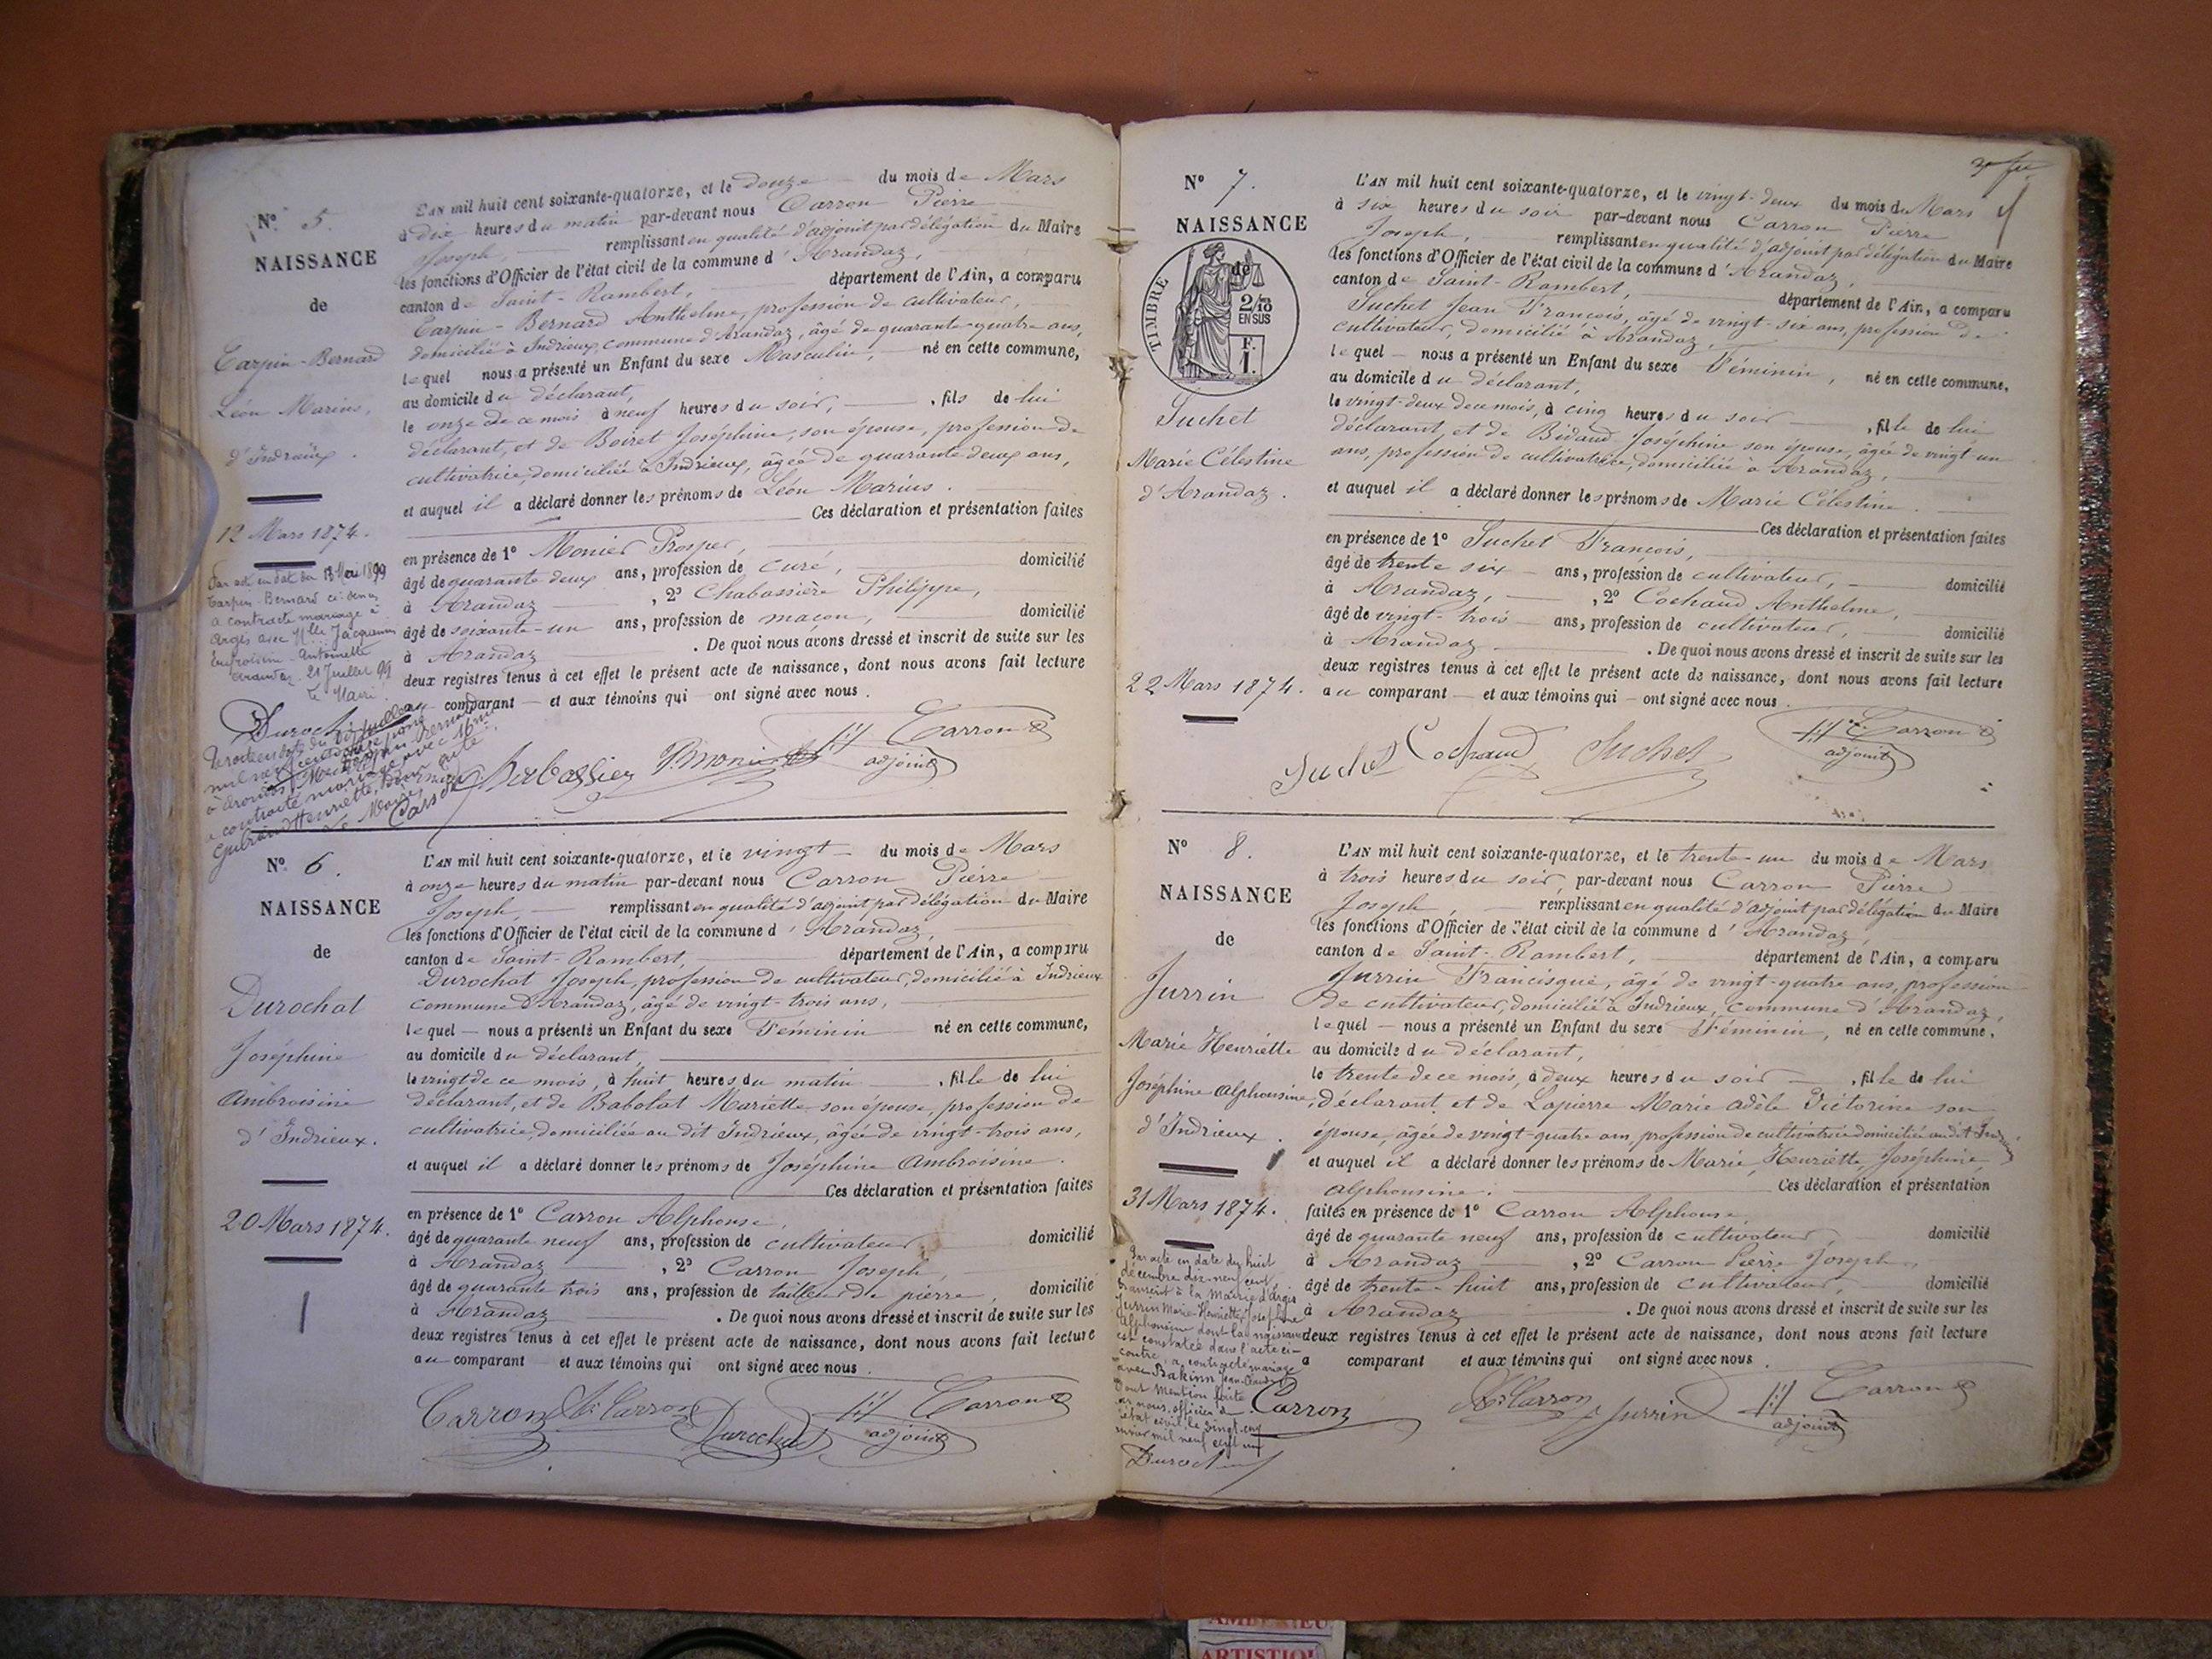 N° 5.
NAISSANCE
de
Carpin-Bernard
Léon Marius,
d'Indrieux.
12 Mars 1874.
Par acte en date du 13 Mai 1899
Carpin-Bernard ci-dessus
a contracté mariage à
Argis avec Mlle Jacquemin
Antoinette
Arandaz 21 Juillet 99
Le Maire
Duroch
L'AN mil huit cent soixante-quatorze, et le douze du mois de Mars
à dix heures du matin par-devant nous Carron Pierre
Joseph, remplissant en qualité d'adjoint par délégation du Maire
les fonctions d'Officier de l'état civil de la commune d'Arandaz,
canton de Saint-Rambert, département de l'Ain, a comparu
Carpin-Bernard Anthelme, profession de cultivateur,
domicilié à Indrieux, commune d'Arandaz, âgé de quarante-quatre ans,
lequel nous a présenté un Enfant du sexe Masculin, né en cette commune,
au domicile du déclarant,
le onze de ce mois à neuf heures du soir, fils de lui
déclarant, et de Boiret Joséphine, son épouse, profession de
cultivatrice, domiciliée à Indrieux, âgée de quarante deux ans,
et auquel il a déclaré donner les prénoms de Léon Marius.
Ces déclaration et présentation faites
en présence de 1° Monier Prosper,
âgé de quarante deux ans, profession de curé, domicilié
à Arandaz, 2° Chabassière Philippe,
âgé de soixante-un ans, profession de maçon, domicilié
à Arandaz. De quoi nous avons dressé et inscrit de suite sur les
deux registres tenus à cet effet le présent acte de naissance, dont nous avons fait lecture
au comparant et aux témoins qui ont signé avec nous.
a contracté mariage avec
Henriette
Le Maire
Carron
adjoint
N° 6.
NAISSANCE
de
Durochat
Joséphine
Ambroisine
d'Indrieux.
20 Mars 1874.
L'AN mil huit cent soixante-quatorze, et le vingt du mois de Mars
à onze heures du matin par-devant nous Carron Pierre
Joseph, remplissant en qualité d'adjoint par délégation du Maire
les fonctions d'Officier de l'état civil de la commune d'Arandaz,
canton de Saint-Rambert, département de l'Ain, a comparu
Durochat Joseph, profession de cultivateur, domicilié à Indrieux
commune d'Arandaz, âgé de vingt-trois ans,
lequel nous a présenté un Enfant du sexe Féminin né en cette commune,
au domicile du déclarant
le vingt de ce mois, à huit heures du matin, fille de lui
déclarant, et de Babolat Mariette son épouse, profession de
cultivatrice, domiciliée au dit Indrieux, âgée de vingt-trois ans,
et auquel il a déclaré donner les prénoms de Joséphine Ambroisine.
Ces déclaration et présentation faites
en présence de 1° Carron Alphonse,
âgé de quarante neuf ans, profession de cultivateur domicilié
à Arandaz, 2° Carron Joseph,
âgé de quarante trois ans, profession de tailleur de pierre, domicilié
à Arandaz. De quoi nous avons dressé et inscrit de suite sur les
deux registres tenus à cet effet le présent acte de naissance, dont nous avons fait lecture
au comparant et aux témoins qui ont signé avec nous.
Carron Carron Durochat Carron
adjoint
N° 7.
NAISSANCE
de
TIMBRE
2/10 EN SUS
F. 1.
Juchet
Marie Célestine
d'Arandaz.
22 Mars 1874.
L'AN mil huit cent soixante-quatorze, et le vingt-deux du mois de Mars
à six heures du soir par-devant nous Carron Pierre
Joseph, remplissant en qualité d'adjoint par délégation du Maire
les fonctions d'Officier de l'état civil de la commune d'Arandaz,
canton de Saint-Rambert, département de l'Ain, a comparu
Juchet Jean François, âgé de vingt-six ans, profession de
cultivateur, domicilié à Arandaz,
lequel nous a présenté un Enfant du sexe Féminin, né en cette commune,
au domicile du déclarant,
le vingt-deux de ce mois, à cinq heures du soir, fille de lui
déclarant et de Bidaud Joséphine son épouse, âgée de vingt un
ans, profession de cultivatrice, domiciliée à Arandaz,
et auquel il a déclaré donner les prénoms de Marie Célestine.
Ces déclaration et présentation faites
en présence de 1° Juchet François,
âgé de trente six ans, profession de cultivateur, domicilié
à Arandaz, 2° Cochaud Anthelme,
âgé de vingt-trois ans, profession de cultivateur, domicilié
à Arandaz. De quoi nous avons dressé et inscrit de suite sur les
deux registres tenus à cet effet le présent acte de naissance, dont nous avons fait lecture
au comparant et aux témoins qui ont signé avec nous
Juchet Cochaud Juchet Carron
adjoint
N° 8.
NAISSANCE
de
Jurrin
Marie Henriette
Joséphine Alphonsine,
d'Indrieux.
31 Mars 1874.
Par acte en date du huit
décembre dix-neuf cent,
à la Mairie d'Argis
Jurrin Marie Henriette Joséphine
Alphonsine dont la naissance
est constatée dans l'acte ci-
contre, a contracté mariage
avec
Dont Mention faite
par nous, officier de
l'état civil le vingt
janvier mil neuf cent un
L'AN mil huit cent soixante-quatorze, et le trente-un du mois de Mars
à trois heures du soir, par-devant nous Carron Pierre
Joseph, remplissant en qualité d'adjoint par délégation du Maire
les fonctions d'Officier de l'état civil de la commune d'Arandaz,
canton de Saint-Rambert, département de l'Ain, a comparu
Jurrin Francisque, âgé de vingt-quatre ans, profession
de cultivateur, domicilié à Indrieux, commune d'Arandaz,
lequel nous a présenté un Enfant du sexe Féminin, né en cette commune,
au domicile du déclarant,
le trente de ce mois, à deux heures du soir, fille de lui
déclarant et de Lapierre Marie Adèle Victorine son
épouse, âgée de vingt-quatre ans, profession de cultivatrice domiciliée au dit Indrieux
et auquel il a déclaré donner les prénoms de Marie Henriette Joséphine
Alphonsine. Ces déclaration et présentation
faites en présence de 1° Carron Alphonse
âgé de quarante neuf ans, profession de cultivateur, domicilié
à Arandaz, 2° Carron Pierre Joseph,
âgé de trente-huit ans, profession de cultivateur, domicilié
à Arandaz. De quoi nous avons dressé et inscrit de suite sur les
deux registres tenus à cet effet le présent acte de naissance, dont nous avons fait lecture
a comparant et aux témoins qui ont signé avec nous.
Carron Carron Jurrin Carron
adjoint
ARTISTIQU